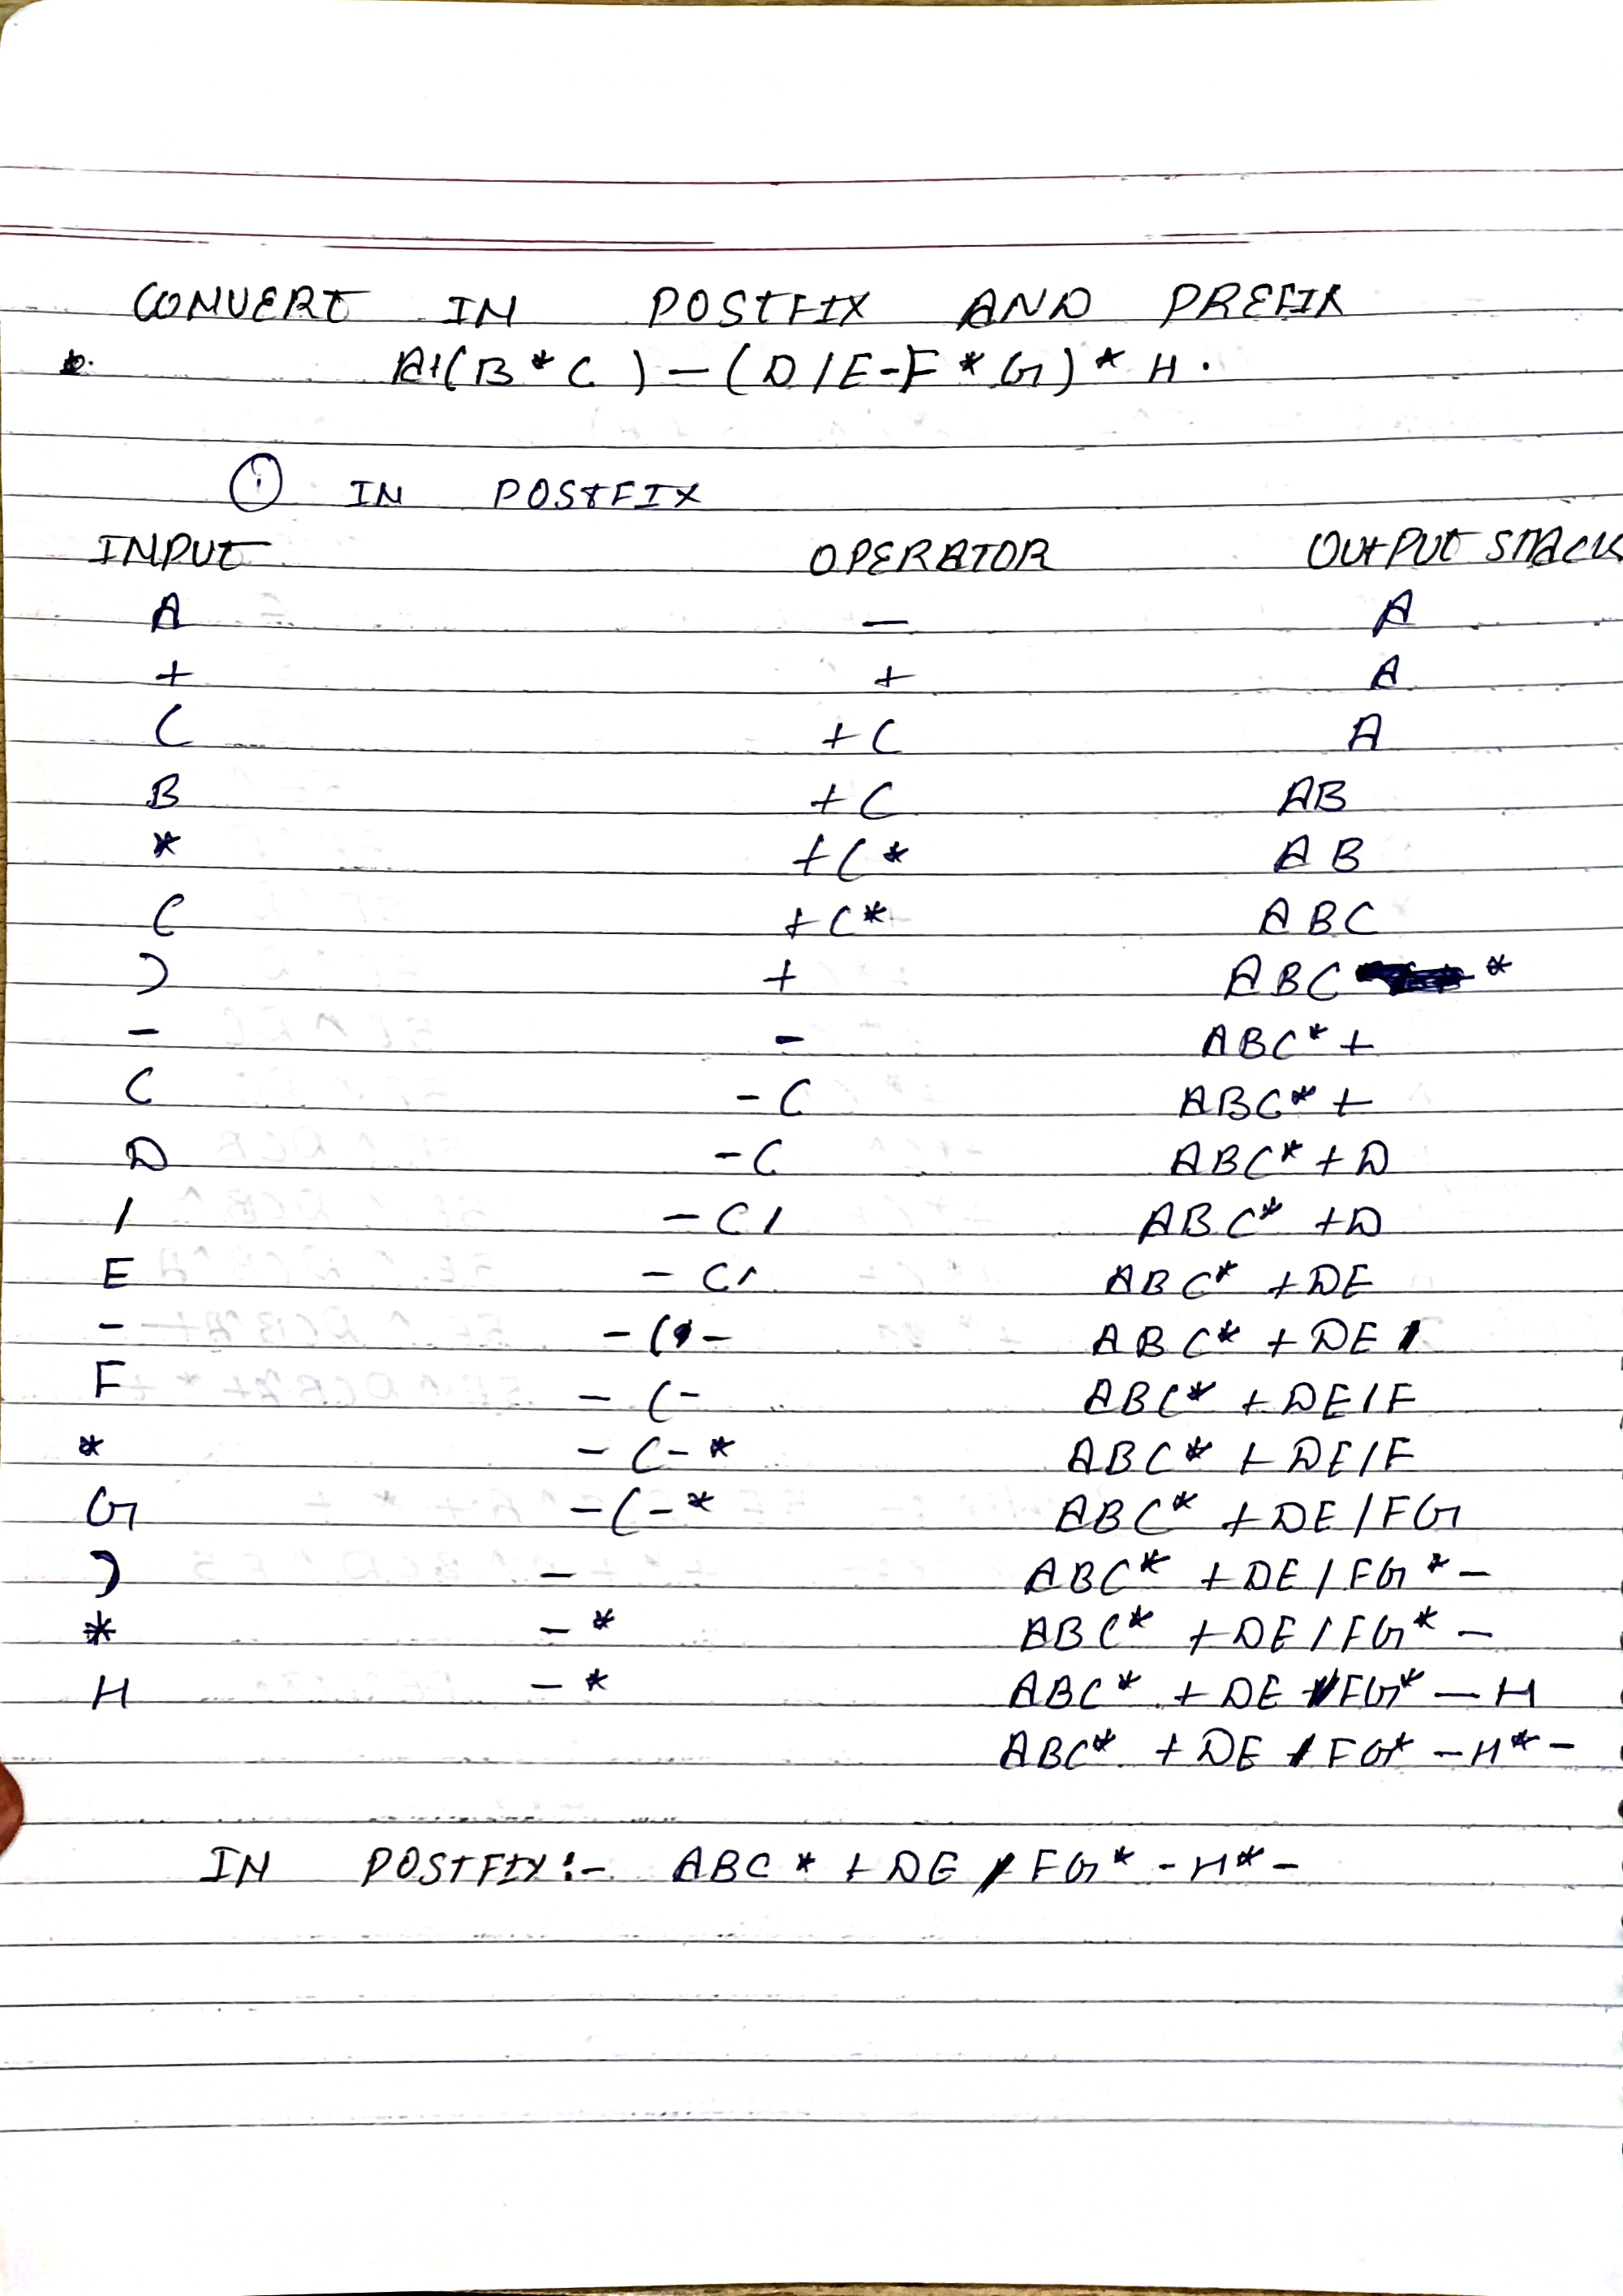 CONVERT IN POSTFIX AND PREFIX
A+(B * C ) – (D/E-F * G) * H .
(i) IN POSTFIX
INPUT OPERATOR OUTPUT STACK
A — A
+ + A
( +( A
B +( AB
* +(* AB
C +(* ABC
) + ABC *
- - ABC*+
( -( ABC*+
D -( ABC*+D
/ -(/ ABC*+D
E -(/ ABC*+DE
- -(- ABC*+DE/
F -(- ABC*+DE/F
* -(-* ABC*+DE/F
G -(-* ABC*+DE/FG
) - ABC*+DE/FG*-
* -* ABC*+DE/FG*-
H -* ABC*+DE/FG*-H
ABC*+DE/FG*-H*-
IN POSTFIX:- ABC*+DE/FG*-H*-